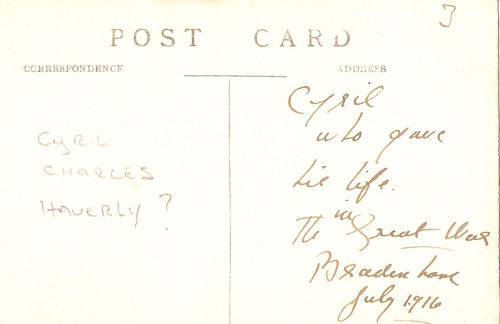 3
POST CARD
CORRESPONDENCE
ADDRESS
CYRIL
CHARLES
HAVERLY ?
Cyril
who gave
his life.
in
The Great War
July 1916